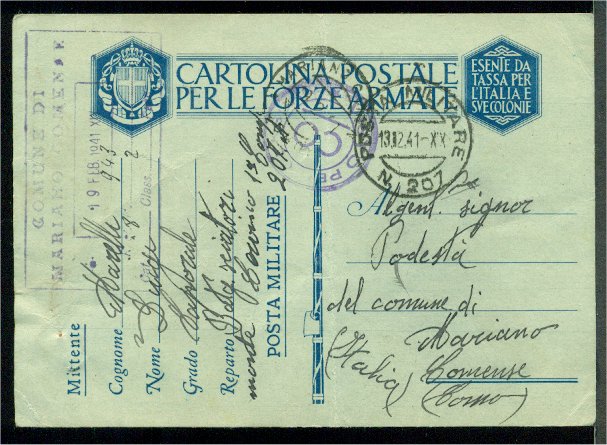 CARTOLINA POSTALE
PER LE FORZE ARMATE
ESENTE DA
TASSA PER
L'ITALIA E
SVE COLONIE
COMUNE DI
MARIANO COMENSE
19 FEB. 1941 XIX
943 2
Class.
POSTA MILITARE
13.12.41-XX
N. 207
Al gent. signor
Podestà
del comune di
Mariano
Comense
(Italia) (Como)
Mittente
Cognome Marelli
Nome Luigi
Grado Caporale
Reparto
monte Cervino
POSTA MILITARE 207